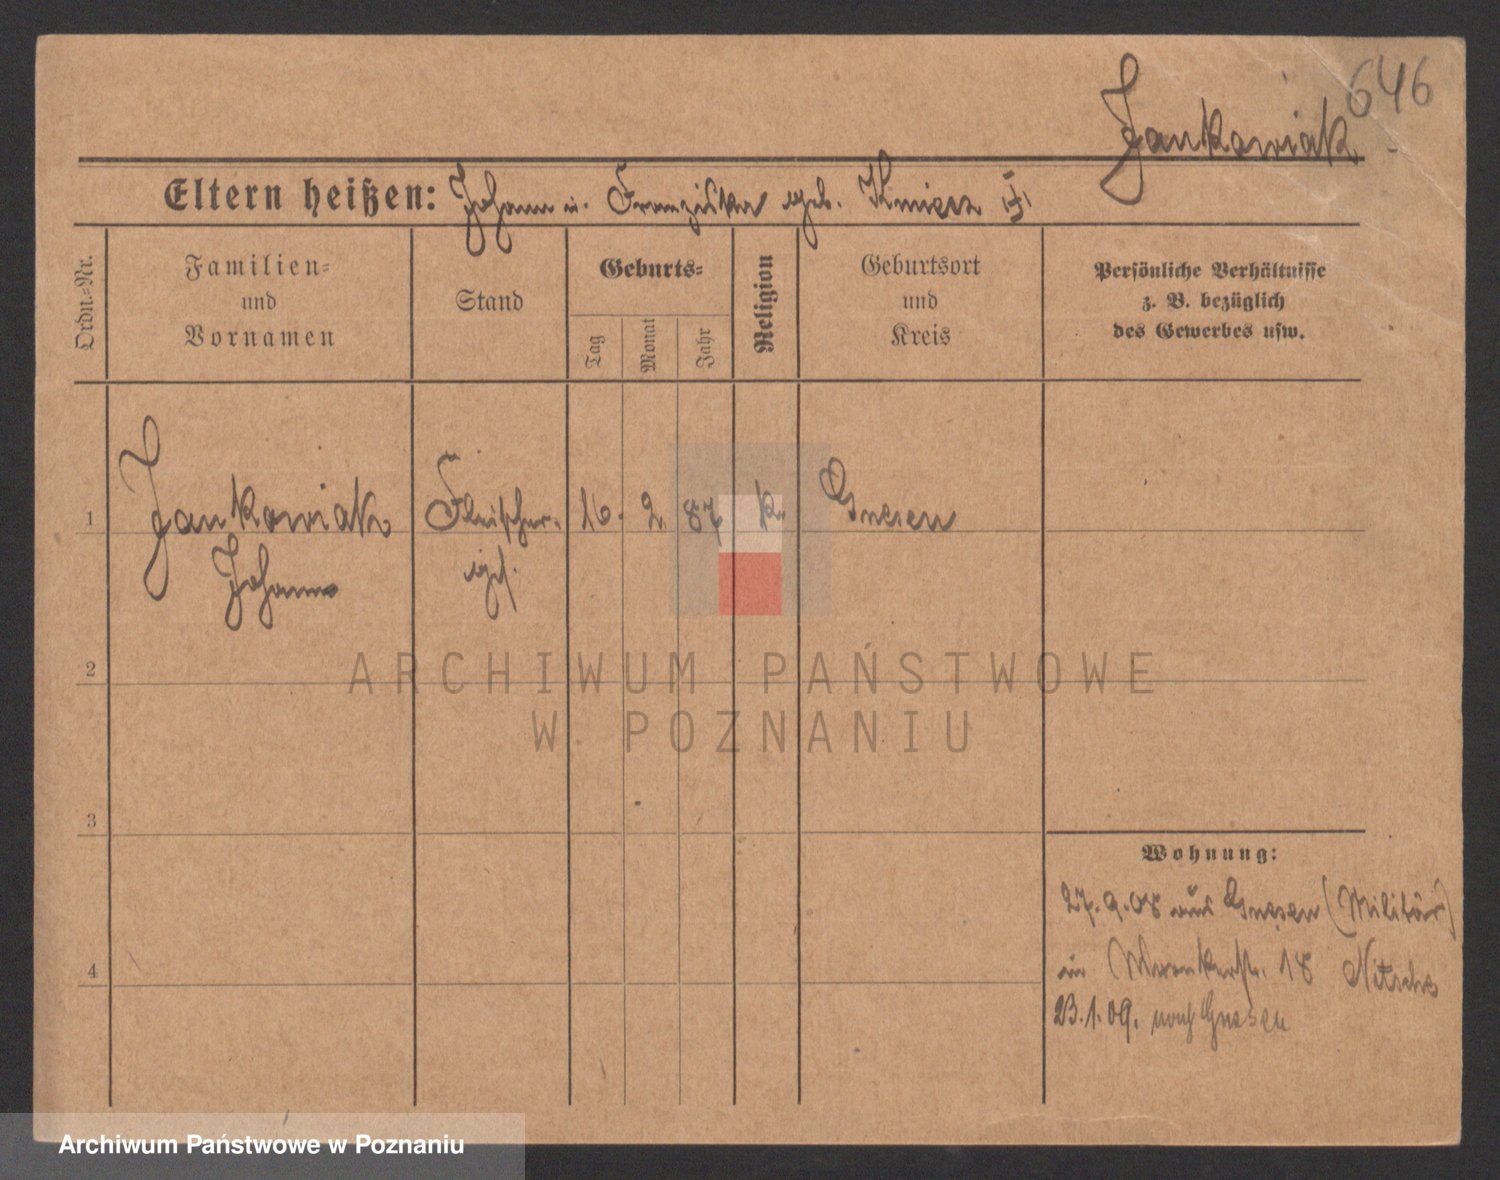 646
Jankowiak
Eltern heißen: Johann u. Franziska geb. Kmiecz
Ordn.-Nr.
Familien-
und
Vornamen
Stand
Geburts-
Tag
Monat
Jahr
Religion
Geburtsort
und
Kreis
Persönliche Verhältnisse
z. B. bezüglich
des Gewerbes usw.
1 Jankowiak Fleischer- 16. 2. 87 k. Gnesen
Johann gs.
2
ARCHIWUM PAŃSTWOWE
W POZNANIU
3
Wohnung:
27.9.08 aus Gnesen (Militär)
in 18 Nitsche
4
23.1.09. nach Gnesen
Archiwum Państwowe w Poznaniu